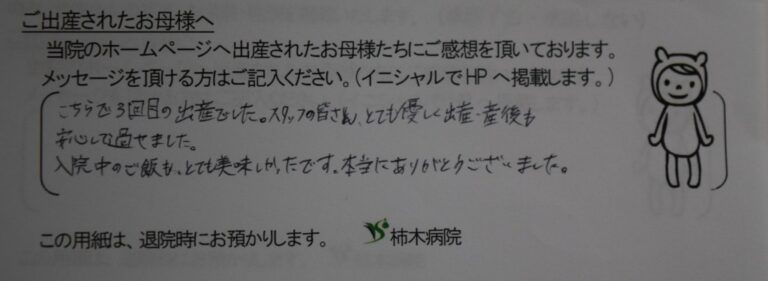 ご出産されたお母様へ
当院のホームページへ出産されたお母様たちにご感想を頂いております。
メッセージを頂ける方はご記入ください。(イニシャルでHPへ掲載します。)
こちらで3回目の出産でした。スタッフの皆さん、とても優しく出産・産後も
安心して過せました。
入院中のご飯も、とても美味しかったです。本当にありがとうございました。
この用細は、退院時にお預かりします。
柿木病院